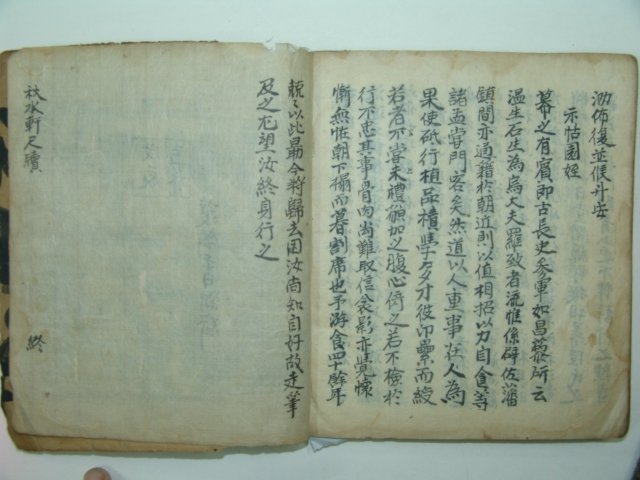 泐佈復並候升安
示怙園姪
幕之有賓即古長史參軍如昌藜所云
溫生石生為烏大夫羅致者流惟係辟佐藩
鎮間亦通籍於朝近則以值相招以力自食等
諸孟嘗門客矣然道以人重事在人為
果使砥行植品積學多才彼印纍而綬
若者不嘗未禮貌加之腹心倚之若不檢於
行不忠其事骨肉尚難取信衾影亦覺懷
慚無怪朝下榻而暮割席也予游食四十餘年
兢〻以此勗今將歸去因汝尚知自好故走筆
及之尤望汝終身行之
秋水軒尺牘 終